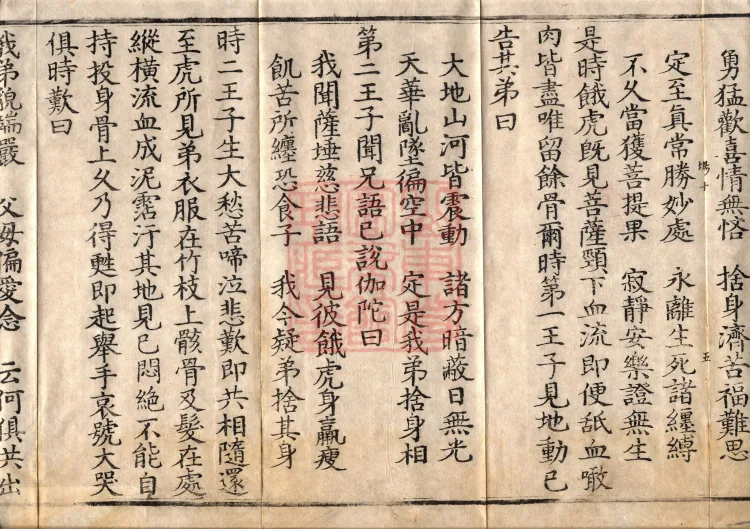 勇猛歡喜情無悋　捨身濟苦福難思
定至眞常勝妙處　永離生死諸纏縛
不久當獲菩提果　寂靜安樂證無生
是時餓虎旣見菩薩頸下血流卽便舐血噉
肉皆盡唯留餘骨爾時第一王子見地動已
告其弟曰
大地山河皆震動　諸方暗蔽日無光
天華亂墜徧空中　定是我弟捨身相
第二王子聞兄語已說伽陀曰
我聞薩埵慈悲語　見彼餓虎身羸瘦
飢苦所纏恐食子　我今疑弟捨其身
時二王子生大愁苦啼泣悲歎卽共相隨還
至虎所見弟衣服在竹枝上骸骨及髮在處
縱橫流血成泥霑汙其地見已悶絕不能自
持投身骨上久乃得甦卽起舉手哀號大哭
俱時歎曰
我弟貌端嚴　父母偏愛念　云何俱共出